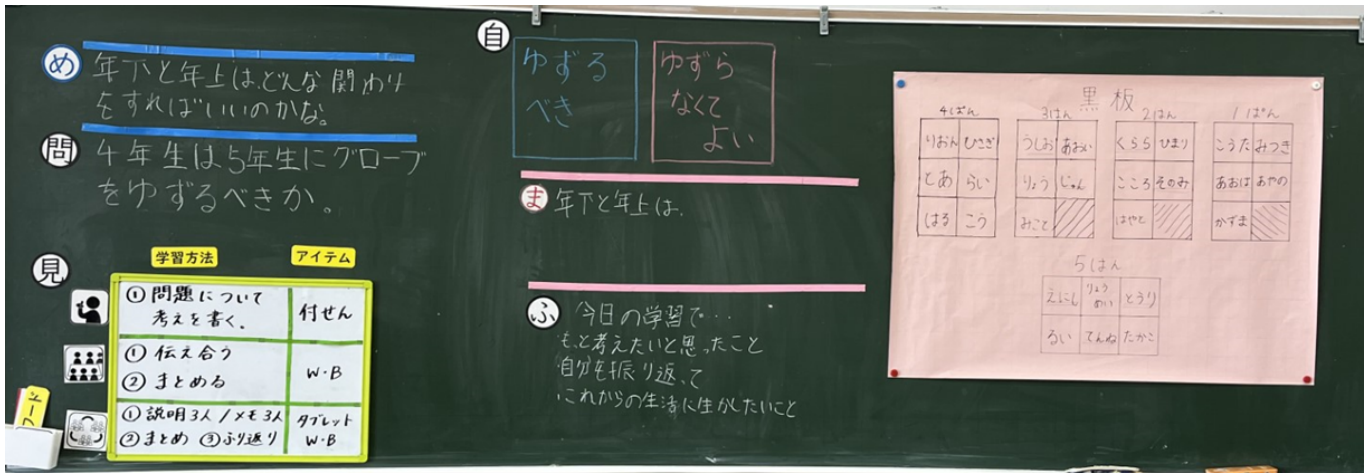 め
年下と年上は、どんな関わり
をすればいいのかな。
問
4年生は5年生にグローブ
をゆずるべきか。
見
学習方法 アイテム
① 問題について
考えを書く。
付せん
① 伝え合う
② まとめる
W・B
① 説明3人/メモ3人
② まとめ ③ふり返り
タブレット
W・B
自
ゆずる
べき
ゆずら
なくて
よい
ま
年下と年上は、
ふ
今日の学習で…
・もっと考えたいと思ったこと
・自分を振り返って
・これからの生活に生かしたいこと
黒板
4はん 3はん 2はん 1ぱん
りおん ひさぎ うしお あおい くらら ひまり こうた みつき
とあ らい りょう じゅん こころ そのみ あおは あやの
はる こう みこと はやと かずま
5はん
えにし りょうめい とうり
るい てんね たかこ